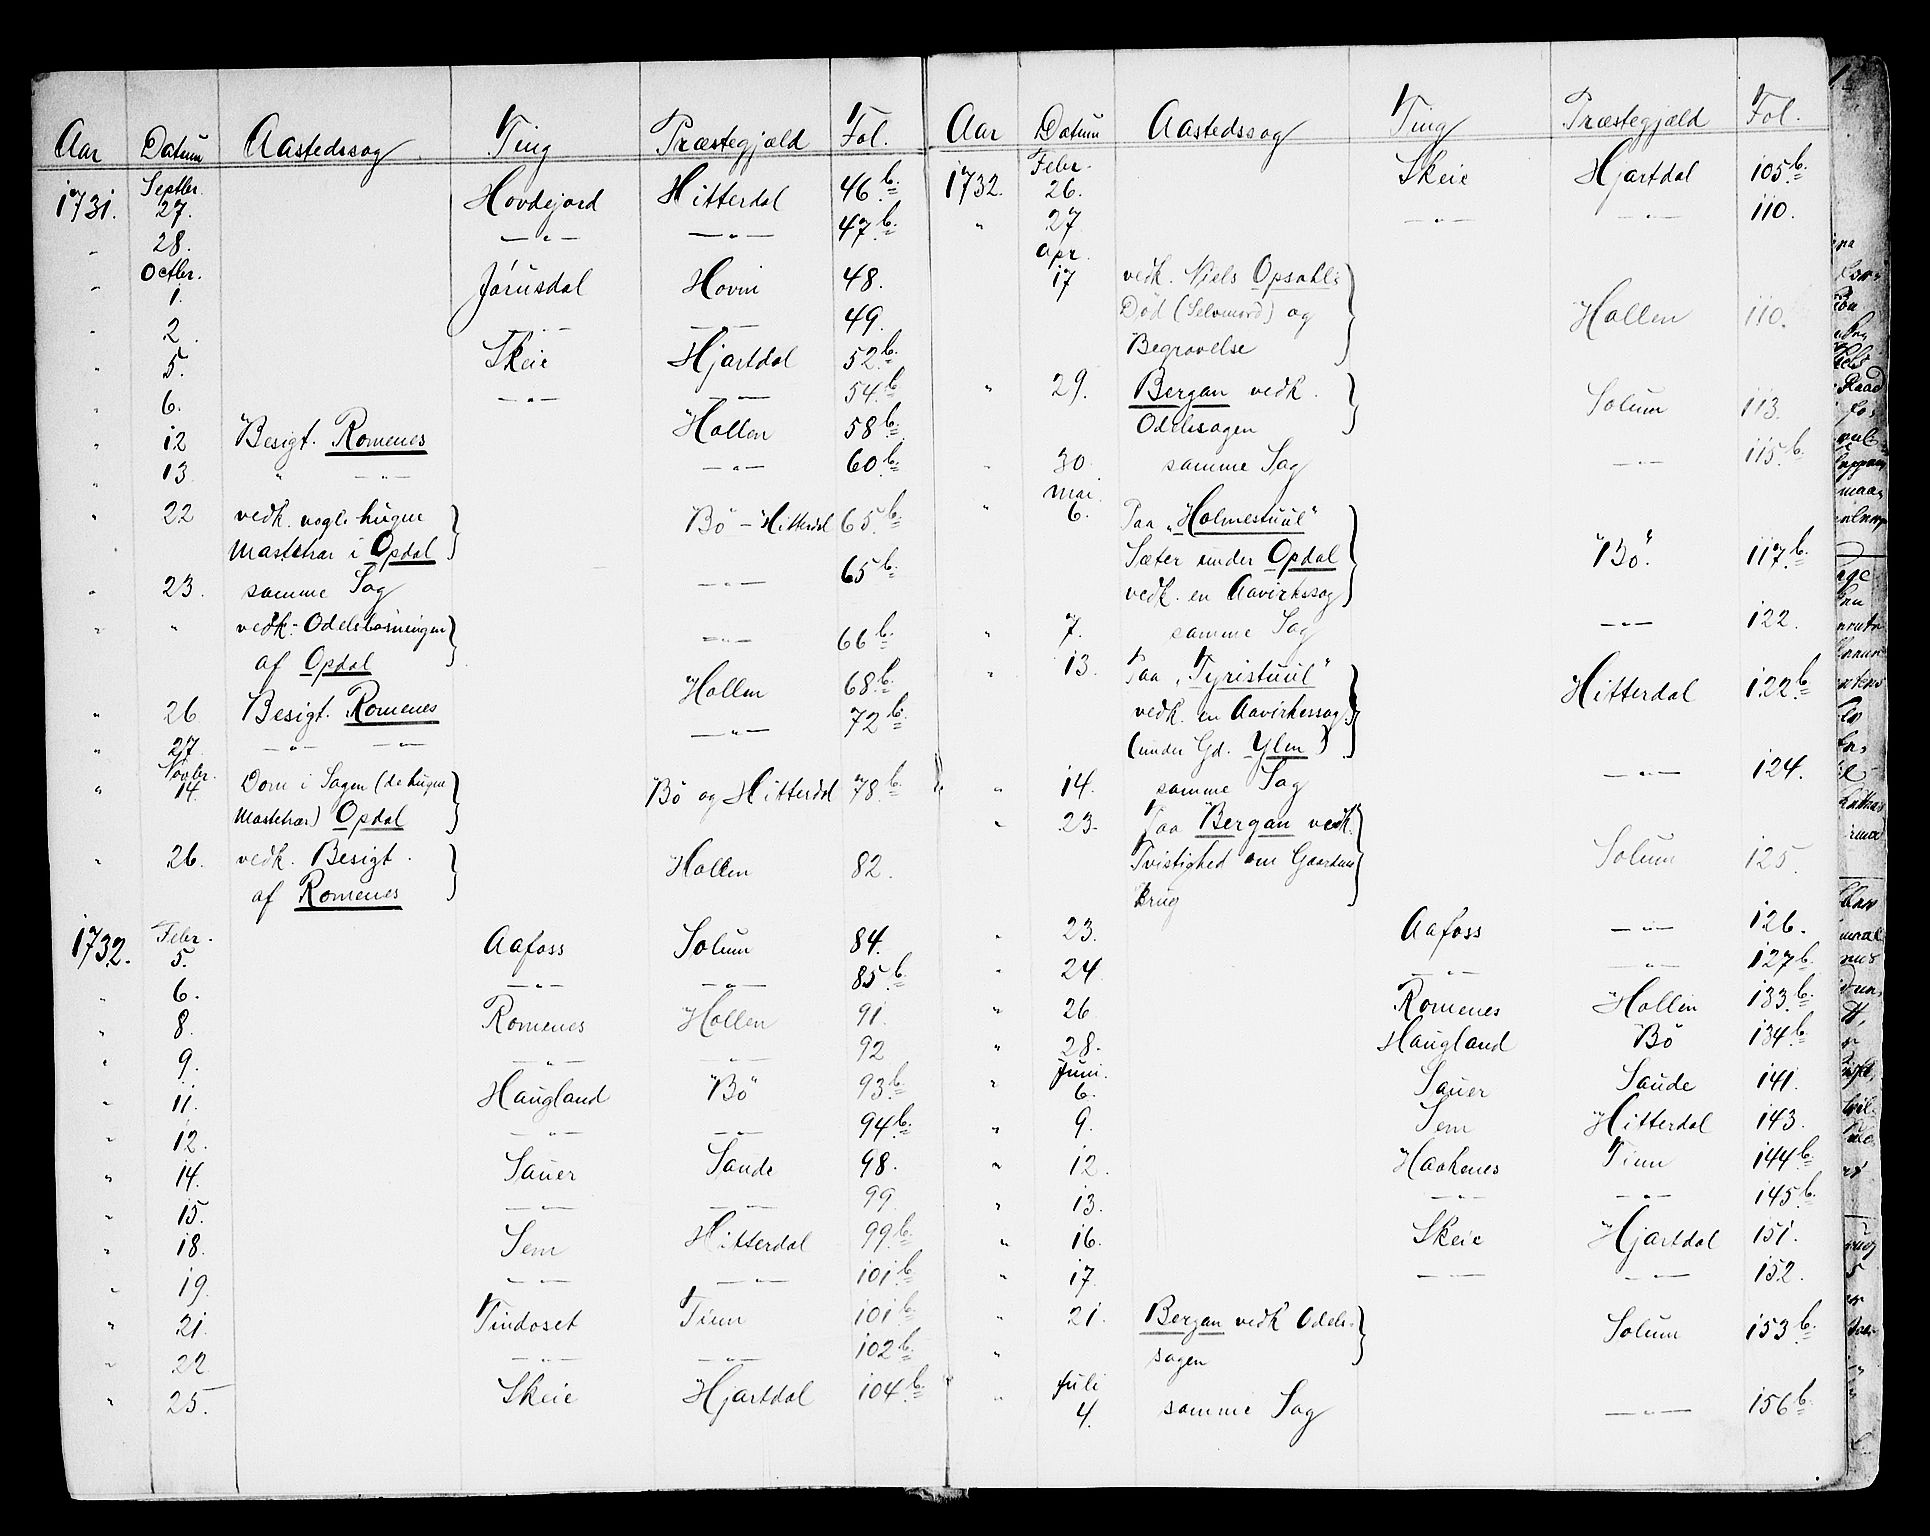 Aar Datum Aastedssag Ting Præstegjæld Fol.
1731. Septbr. 27. Hovdejord Hitterdal 46 b.
" 28. — " — — " — 47 b.
" Octbr. 1. Jörusdal Hovin 48.
" 2. — " — — " — 49.
" 5. Skeie Hjartdal 52 b.
" 6. — " — — " — 54 b.
" 12 Besigt. Romenes Hollen 58 b.
" 13 " — " — — " — 60 b.
" 22 vedk. nogle hugne
Mastetrær i Opdal Bö - Hitterdal 65 b.
" 23. samme Sag — " — 65 b.
" " vedk. Odelsløsningen
af Opdal — " — 66 b.
" 26 Besigt. Romenes Hollen 68 b.
" 27. — " — — " — — " — 72 b.
" Novbr. 14. Dom i Sagen (de hugne
Mastetrær) Opdal Bö og Hitterdal 78 b.
" 26. vedk. Besigt.
af Romenes Hollen 82.
1732. Febr. 5. Aafoss Solum 84.
" 6. — " — — " — 85 b.
" 8. Romenes Hollen 91.
" 9. — " — — " — 92
" 11. Haugland "Bö" 93 b.
" 12. — " — — " — 94 b.
" 14. Sauer Saude 98.
" 15. — " — — " — 99
" 18. Sem Hitterdal 99 b.
" 19. — " — — " — 101 b.
" 21. Tindoset Tinn 101 b.
" 22 — " — — " — 102 b.
" 25. Skeie Hjartdal 104 b.
Aar Datum Aastedssag Ting Præstegjæld Fol.
1732. Febr. 26. Skeie Hjartdal 105 b.
" 27. — " — — " — 110.
Apr. 17 vedk. Niels Opsahls
Död (Selvmord) og Hollen 110.
Begravelse
" 29. Bergan vedk.
Odelssagen Solum 113.
" 30. samme Sag — " — 115 b.
" Mai. 6. Paa "Holmestuul"
Sæter under Opdal "Bö". 117 b.
vedk. en Aavirkssag
" 7. samme Sag — " — 122.
" 13. Paa "Tyristuul"
vedk. en Aavirkessag Hitterdal 122 b
(under Gd. Ylen)
" 14. samme Sag — " — 124.
" 23. Paa Bergan vedk.
Tvistighed om Gaardens Solum 125
Brug
" 23. Aafoss — " — 126.
" 24. — " — — " — 127 b.
" 26 Romenes Hollen 133 b.
" 28. Haugland Bö 134 b.
" Juni. 6. Sauer Saude 141.
" 9. Sem Hitterdal 143.
" 12. Haakenes Tinn 144 b.
" 13. — " — — " — 145 b.
" 16. Skeie Hjartdal 151.
" 17. — " — — " — 152.
" 21. Bergan vedk Odels-
" sagen Solum 153 b.
" Juli 4. samme Sag — " — 156 b.